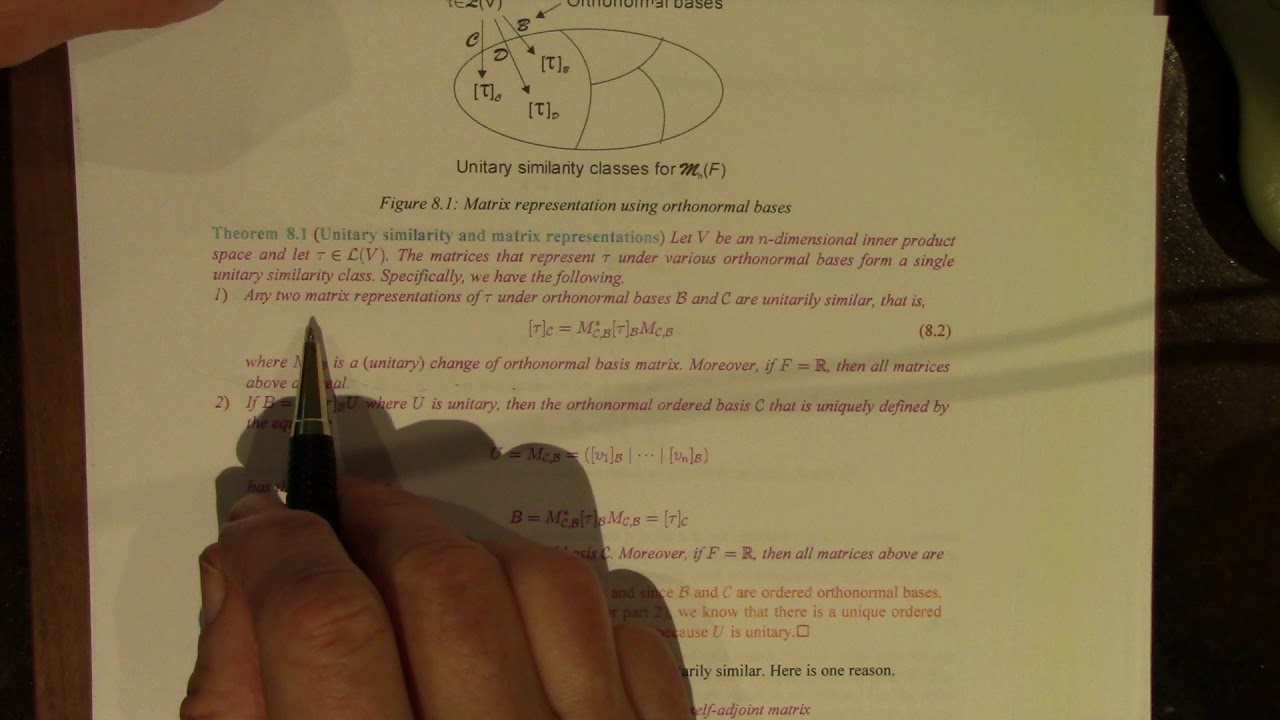 τ∈ℒ(V) Orthonormal bases
ℬ
𝒞
𝒟
[τ]ℬ
[τ]𝒞
[τ]𝒟
Unitary similarity classes for ℳₙ(F)
Figure 8.1: Matrix representation using orthonormal bases
Theorem 8.1 (Unitary similarity and matrix representations) Let V be an n-dimensional inner product
space and let τ ∈ ℒ(V). The matrices that represent τ under various orthonormal bases form a single
unitary similarity class. Specifically, we have the following.
1) Any two matrix representations of τ under orthonormal bases ℬ and 𝒞 are unitarily similar, that is,
[τ]𝒞 = M*𝒞,ℬ[τ]ℬM𝒞,ℬ (8.2)
where is a (unitary) change of orthonormal basis matrix. Moreover, if F = ℝ, then all matrices
above real.
2) If B = ]ℬU where U is unitary, then the orthonormal ordered basis 𝒞 that is uniquely defined by
the
U = M𝒞,ℬ = ([v₁]ℬ | ⋯ | [vₙ]ℬ)
has
B = M*𝒞,ℬ[τ]ℬM𝒞,ℬ = [τ]𝒞
𝒞. Moreover, if F = ℝ, then all matrices above are
and since ℬ and 𝒞 are ordered orthonormal bases,
part 2), we know that there is a unique ordered
because U is unitary.□
similar. Here is one reason.
self-adjoint matrix